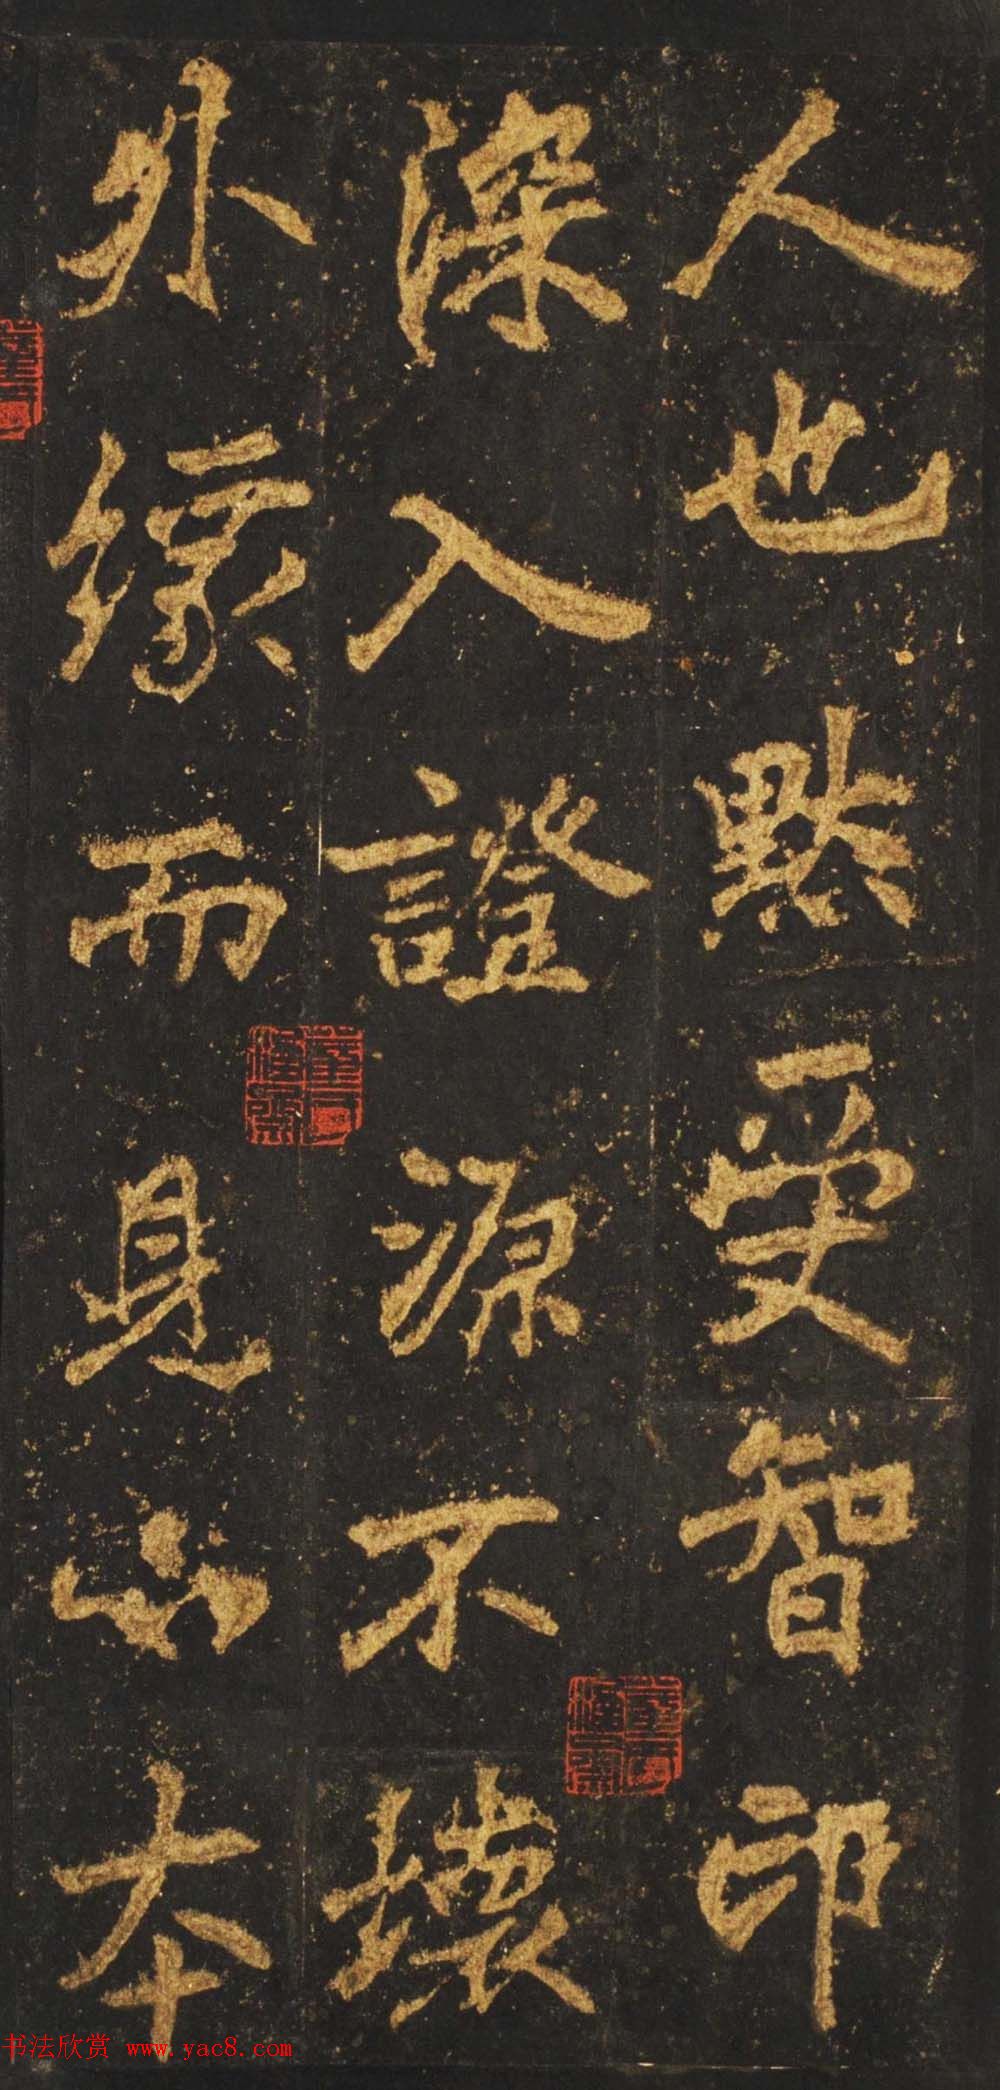 人也黙受智印
深入證源不壞
外缘而見心本
书法欣赏 www.yac8.com